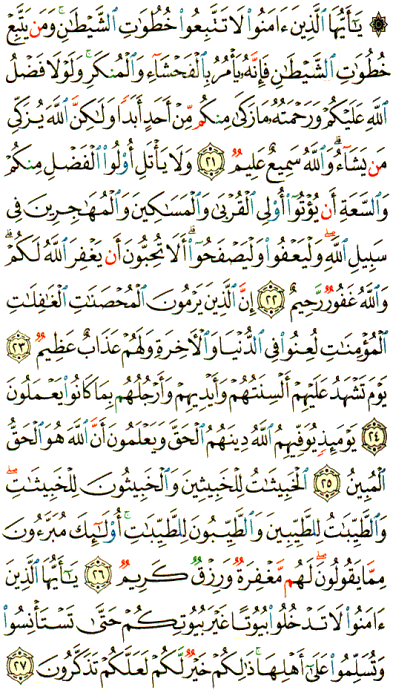 ۞ يَـٰٓأَيُّهَا ٱلَّذِينَ ءَامَنُوا۟ لَا تَتَّبِعُوا۟ خُطُوَٰتِ ٱلشَّيْطَـٰنِ ۚ وَمَن يَتَّبِعْ
خُطُوَٰتِ ٱلشَّيْطَـٰنِ فَإِنَّهُۥ يَأْمُرُ بِٱلْفَحْشَآءِ وَٱلْمُنكَرِ ۚ وَلَوْلَا فَضْلُ
ٱللَّهِ عَلَيْكُمْ وَرَحْمَتُهُۥ مَا زَكَىٰ مِنكُم مِّنْ أَحَدٍ أَبَدًا وَلَـٰكِنَّ ٱللَّهَ يُزَكِّى
مَن يَشَآءُ ۗ وَٱللَّهُ سَمِيعٌ عَلِيمٌ ۝٢١ وَلَا يَأْتَلِ أُو۟لُوا۟ ٱلْفَضْلِ مِنكُمْ
وَٱلسَّعَةِ أَن يُؤْتُوٓا۟ أُو۟لِى ٱلْقُرْبَىٰ وَٱلْمَسَـٰكِينَ وَٱلْمُهَـٰجِرِينَ فِى
سَبِيلِ ٱللَّهِ ۖ وَلْيَعْفُوا۟ وَلْيَصْفَحُوٓا۟ ۗ أَلَا تُحِبُّونَ أَن يَغْفِرَ ٱللَّهُ لَكُمْ ۗ
وَٱللَّهُ غَفُورٌ رَّحِيمٌ ۝٢٢ إِنَّ ٱلَّذِينَ يَرْمُونَ ٱلْمُحْصَنَـٰتِ ٱلْغَـٰفِلَـٰتِ
ٱلْمُؤْمِنَـٰتِ لُعِنُوا۟ فِى ٱلدُّنْيَا وَٱلْـَٔاخِرَةِ وَلَهُمْ عَذَابٌ عَظِيمٌ ۝٢٣
يَوْمَ تَشْهَدُ عَلَيْهِمْ أَلْسِنَتُهُمْ وَأَيْدِيهِمْ وَأَرْجُلُهُم بِمَا كَانُوا۟ يَعْمَلُونَ
۝٢٤ يَوْمَئِذٍ يُوَفِّيهِمُ ٱللَّهُ دِينَهُمُ ٱلْحَقَّ وَيَعْلَمُونَ أَنَّ ٱللَّهَ هُوَ ٱلْحَقُّ
ٱلْمُبِينُ ۝٢٥ ٱلْخَبِيثَـٰتُ لِلْخَبِيثِينَ وَٱلْخَبِيثُونَ لِلْخَبِيثَـٰتِ ۖ
وَٱلطَّيِّبَـٰتُ لِلطَّيِّبِينَ وَٱلطَّيِّبُونَ لِلطَّيِّبَـٰتِ ۚ أُو۟لَـٰٓئِكَ مُبَرَّءُونَ
مِمَّا يَقُولُونَ ۖ لَهُم مَّغْفِرَةٌ وَرِزْقٌ كَرِيمٌ ۝٢٦ يَـٰٓأَيُّهَا ٱلَّذِينَ
ءَامَنُوا۟ لَا تَدْخُلُوا۟ بُيُوتًا غَيْرَ بُيُوتِكُمْ حَتَّىٰ تَسْتَأْنِسُوا۟
وَتُسَلِّمُوا۟ عَلَىٰٓ أَهْلِهَا ۚ ذَٰلِكُمْ خَيْرٌ لَّكُمْ لَعَلَّكُمْ تَذَكَّرُونَ ۝٢٧